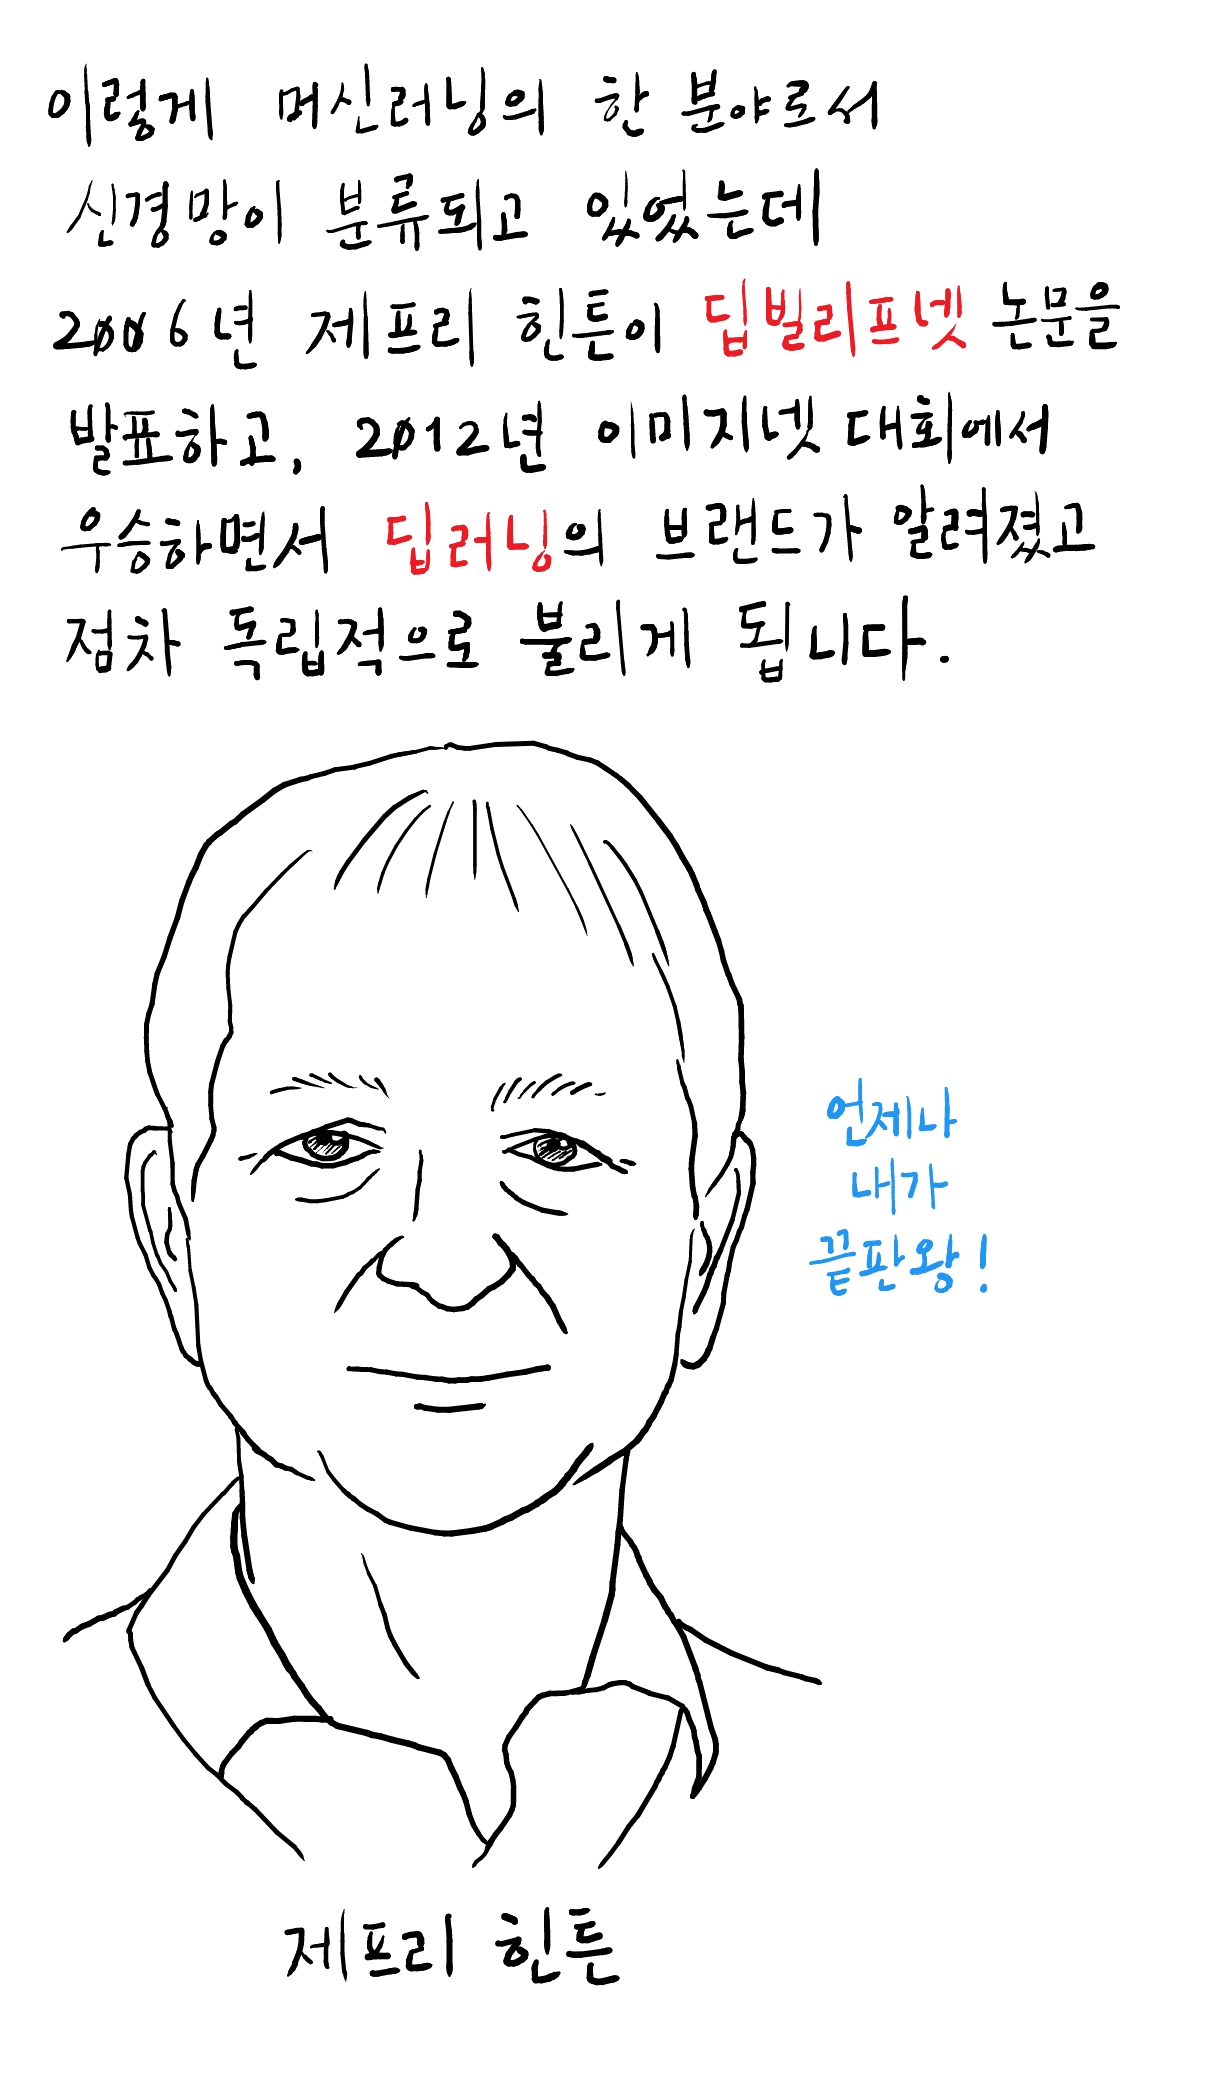 이렇게 머신러닝의 한 분야로서
신경망이 분류되고 있었는데
2006년 제프리 힌튼이 딥빌리프넷 논문을
발표하고, 2012년 이미지넷 대회에서
우승하면서 딥러닝의 브랜드가 알려졌고
점차 독립적으로 불리게 됩니다.
언제나
내가
끝판왕!
제프리 힌튼